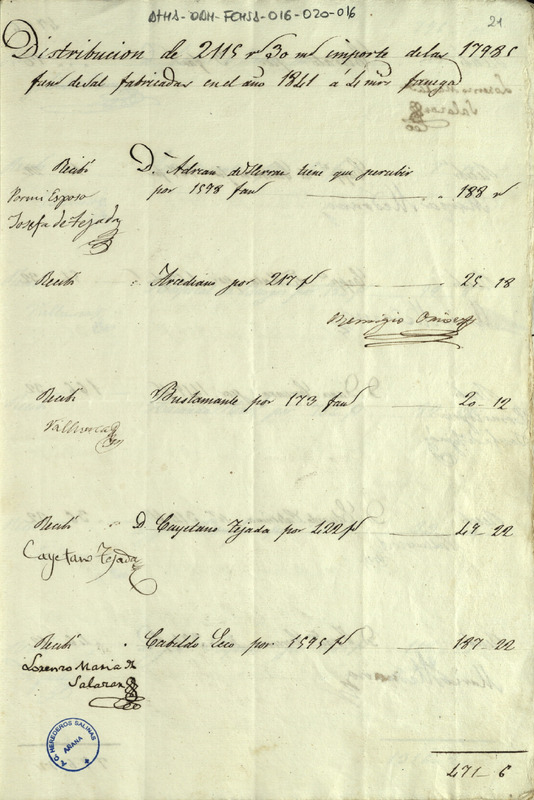 ATHA-DAH-FCHSA-016-020-016
21
Distribucion de 2115 rs 30 ms importe de las 17985
fans de Sal fabricadas en el año 1841 á 4 mrs fanega
Recibí D. Adrian de Herran tiene que percibir
por 1598 fans 188 rs
Por mi Esposo
Josefa de Tejada
Recibí Arcediano por 217 fs 25 18
Remigio
Recibí Bustamante por 173 fans 20 - 12
Recibí D Cayetano Tejada por 422 fs 49 - 22
Cayetano Tejada
Recibí Cabildo Ecco por 1595 fs 187 - 22
Lorenzo Maria de
Salazar
A.G. HEREDEROS SALINAS
AÑANA
471 - 6